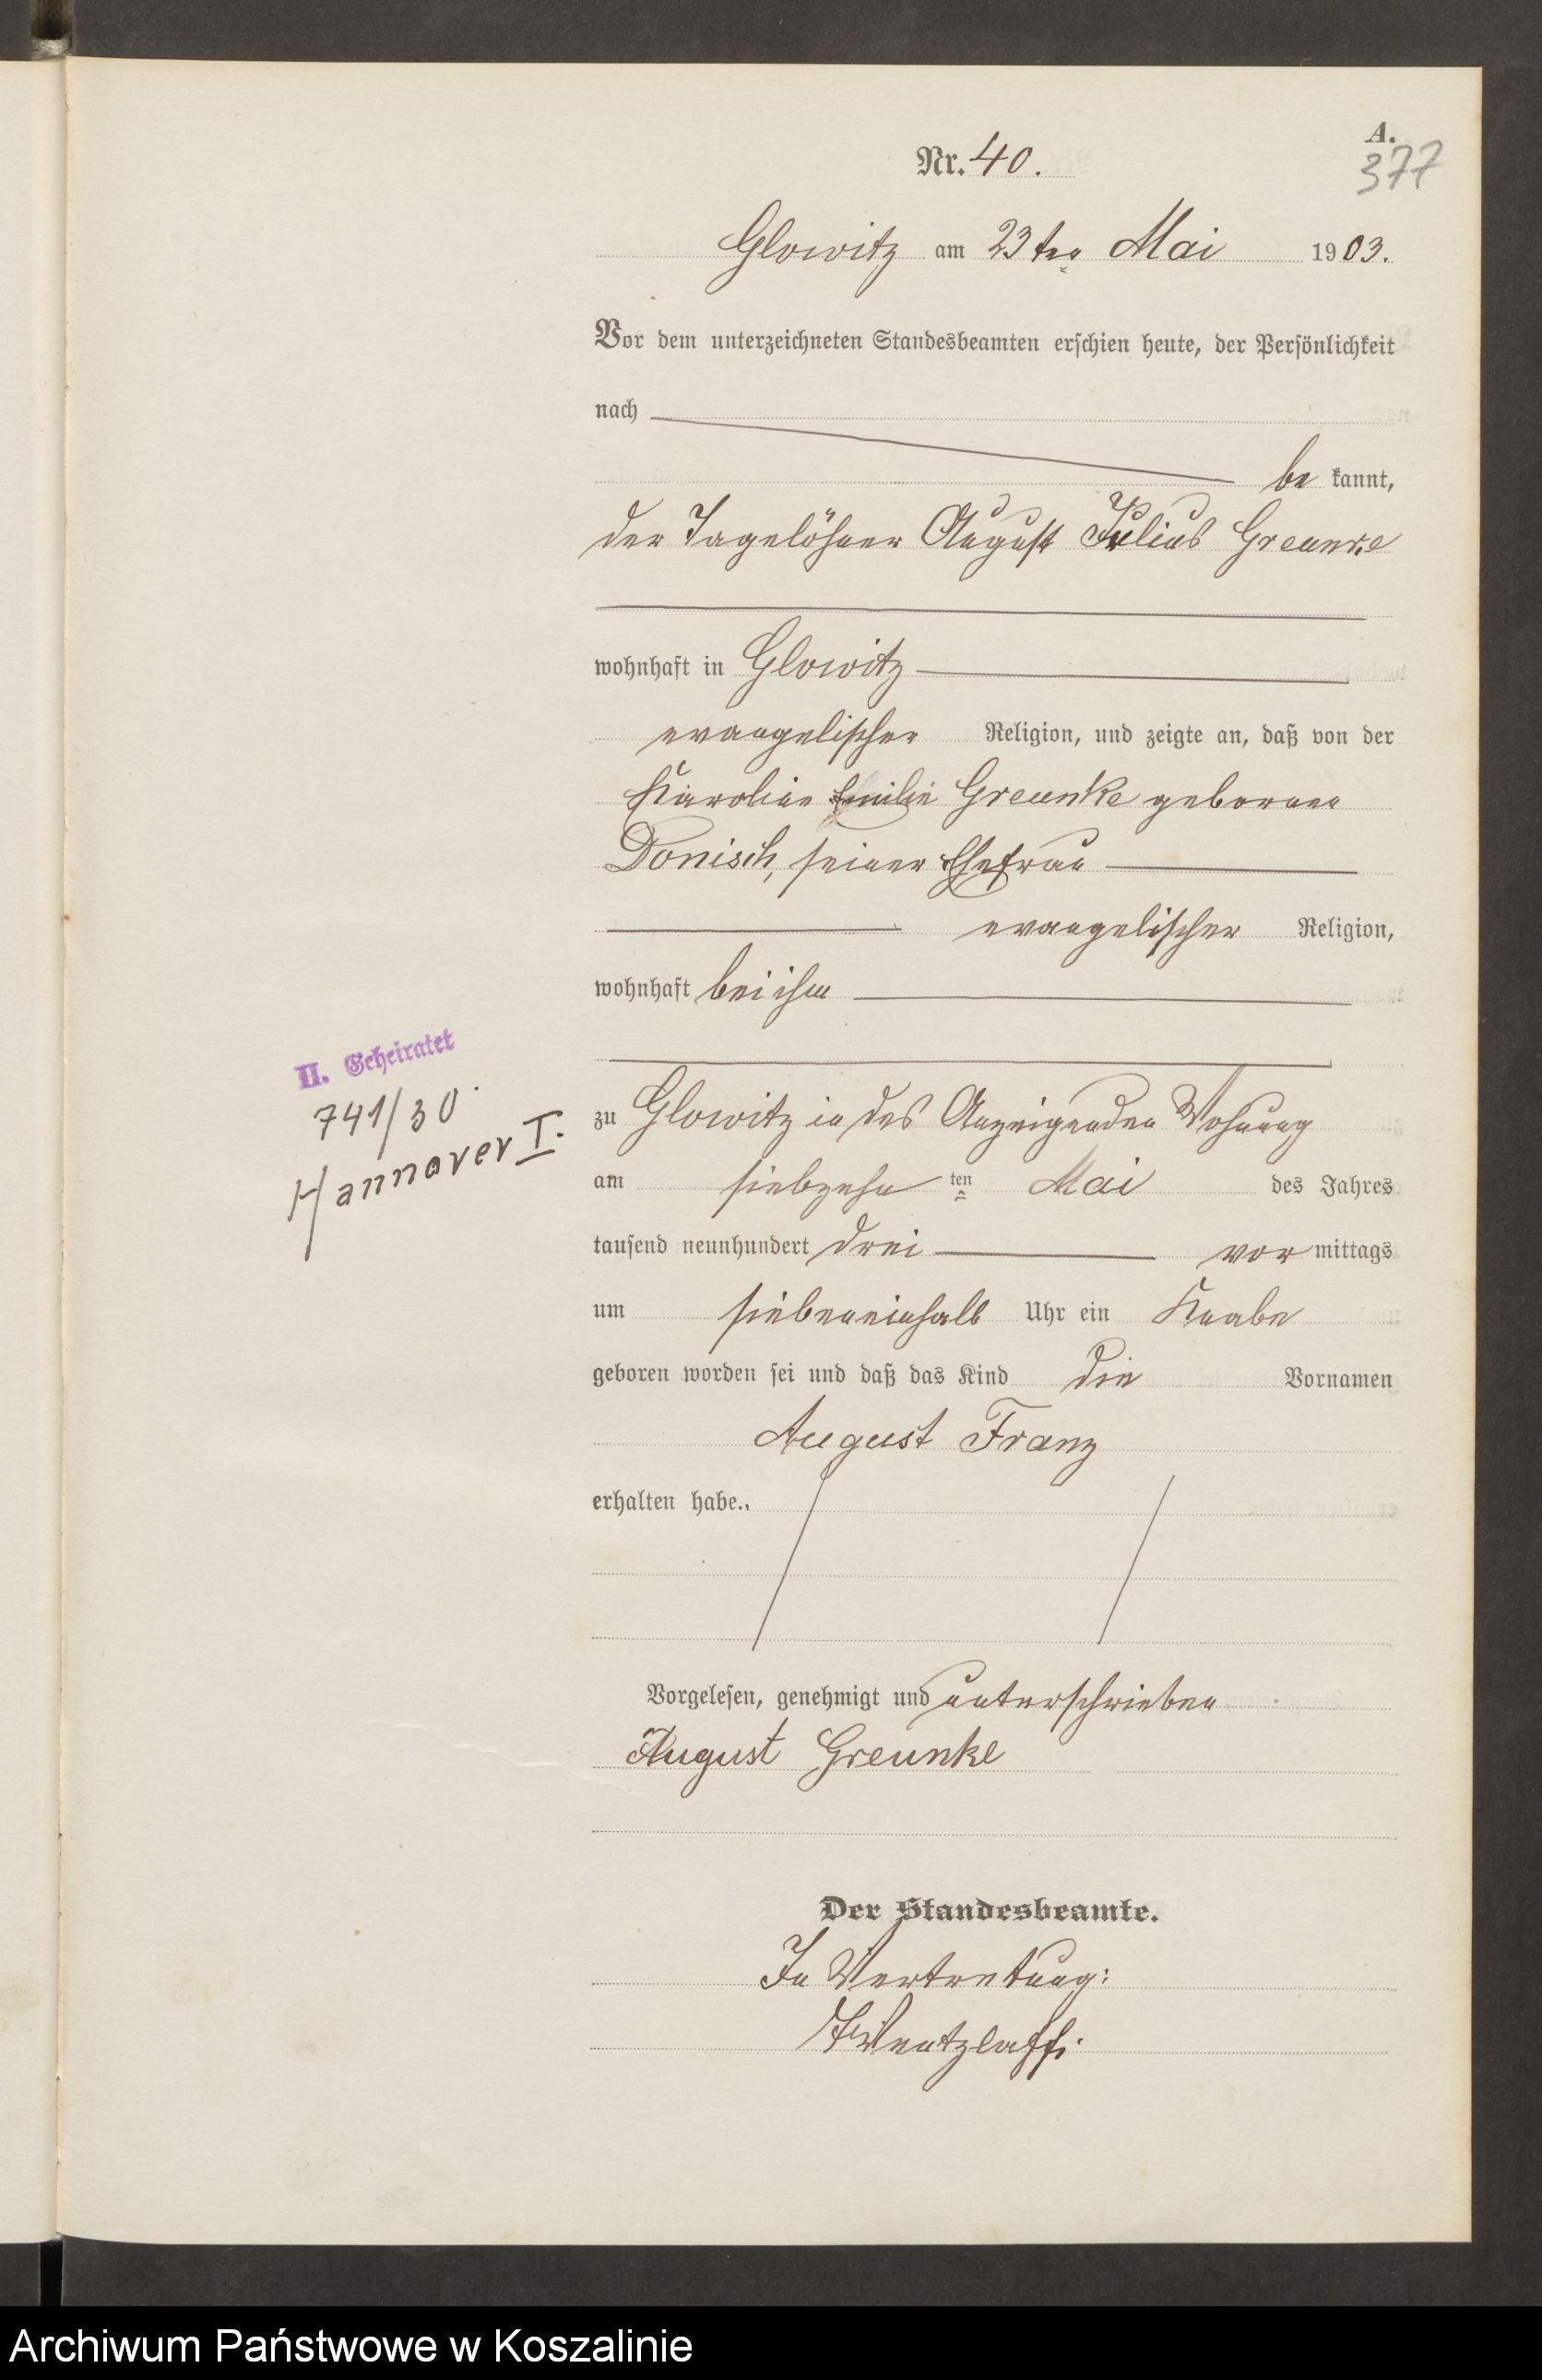 A.
377
Nr. 40.
Glowitz am 23ten Mai 1903.
Vor dem unterzeichneten Standesbeamten erschien heute, der Persönlichkeit
nach
be kannt,
der Tagelöhner August Julius Greunke
wohnhaft in Glowitz
evangelischer Religion, und zeigte an, daß von der
Karoline Emilie Greunke geborenen
Donisch, seiner Ehefrau
evangelischer Religion,
wohnhaft bei ihm
II. Geheiratet
741/30.
Hannover I.
zu Glowitz in des Anzeigenden Wohnung
am siebzehn ten Mai des Jahres
tausend neunhundert drei vor mittags
um siebeneinhalb Uhr ein Knabe
geboren worden sei und daß das Kind die Vornamen
August Franz
erhalten habe..
Vorgelesen, genehmigt und unterschrieben
August Greunke
Der Standesbeamte.
In Vertretung:
Wentzlaff.
Archiwum Państwowe w Koszalinie